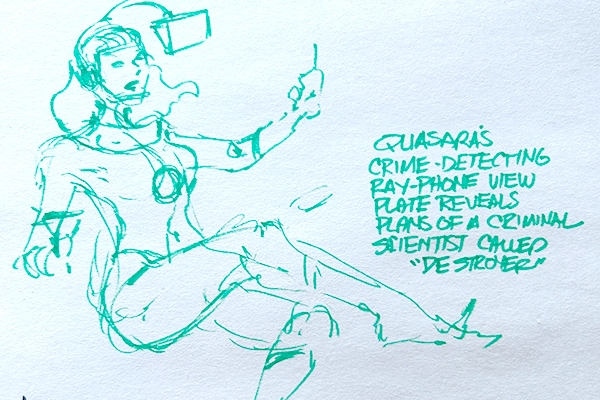 QUASARA'S
CRIME-DETECTING
RAY-PHONE VIEW
PLATE REVEALS
PLANS OF A CRIMINAL
SCIENTIST CALLED
"DESTROYER"